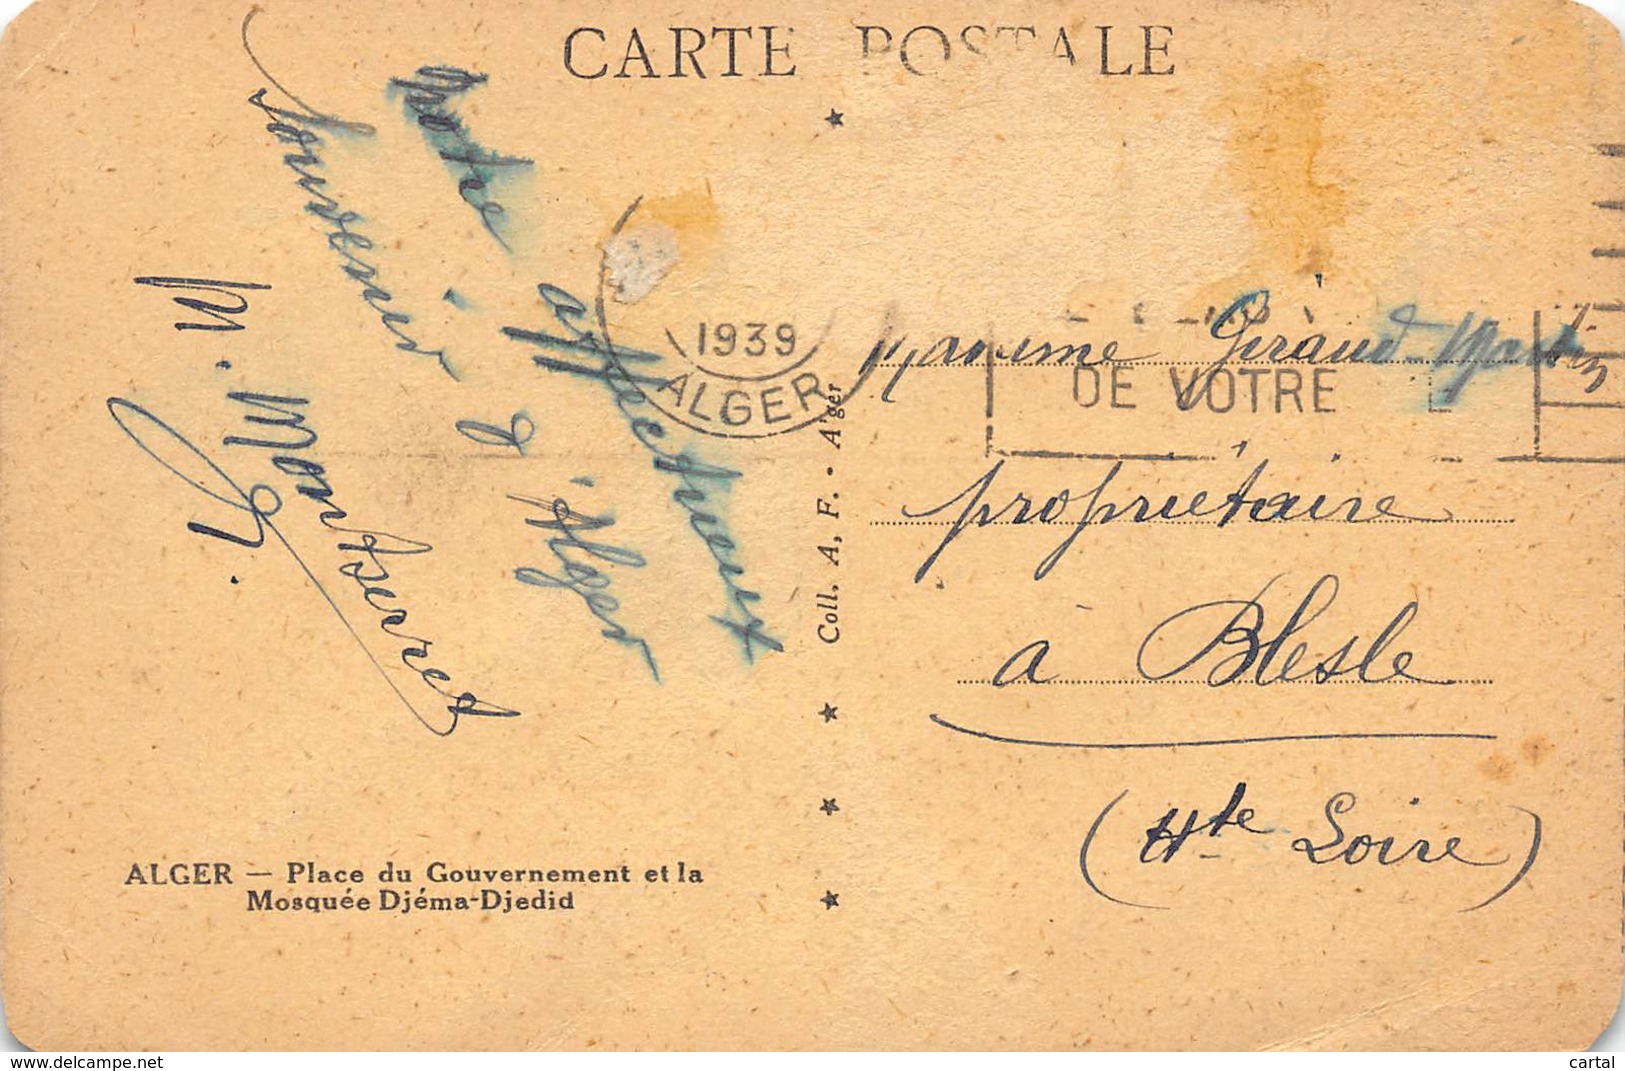 CARTE POSTALE
Notre affectueux
Souvenir d'Alger
M. Montserret
1939
ALGER
DE VOTRE
Coll. A, F. - Alger
Maxime Giraud-Martin
propriétaire
à Blesle
(Hte Loire)
ALGER — Place du Gouvernement et la
Mosquée Djéma-Djedid
delcampe.net
cartal